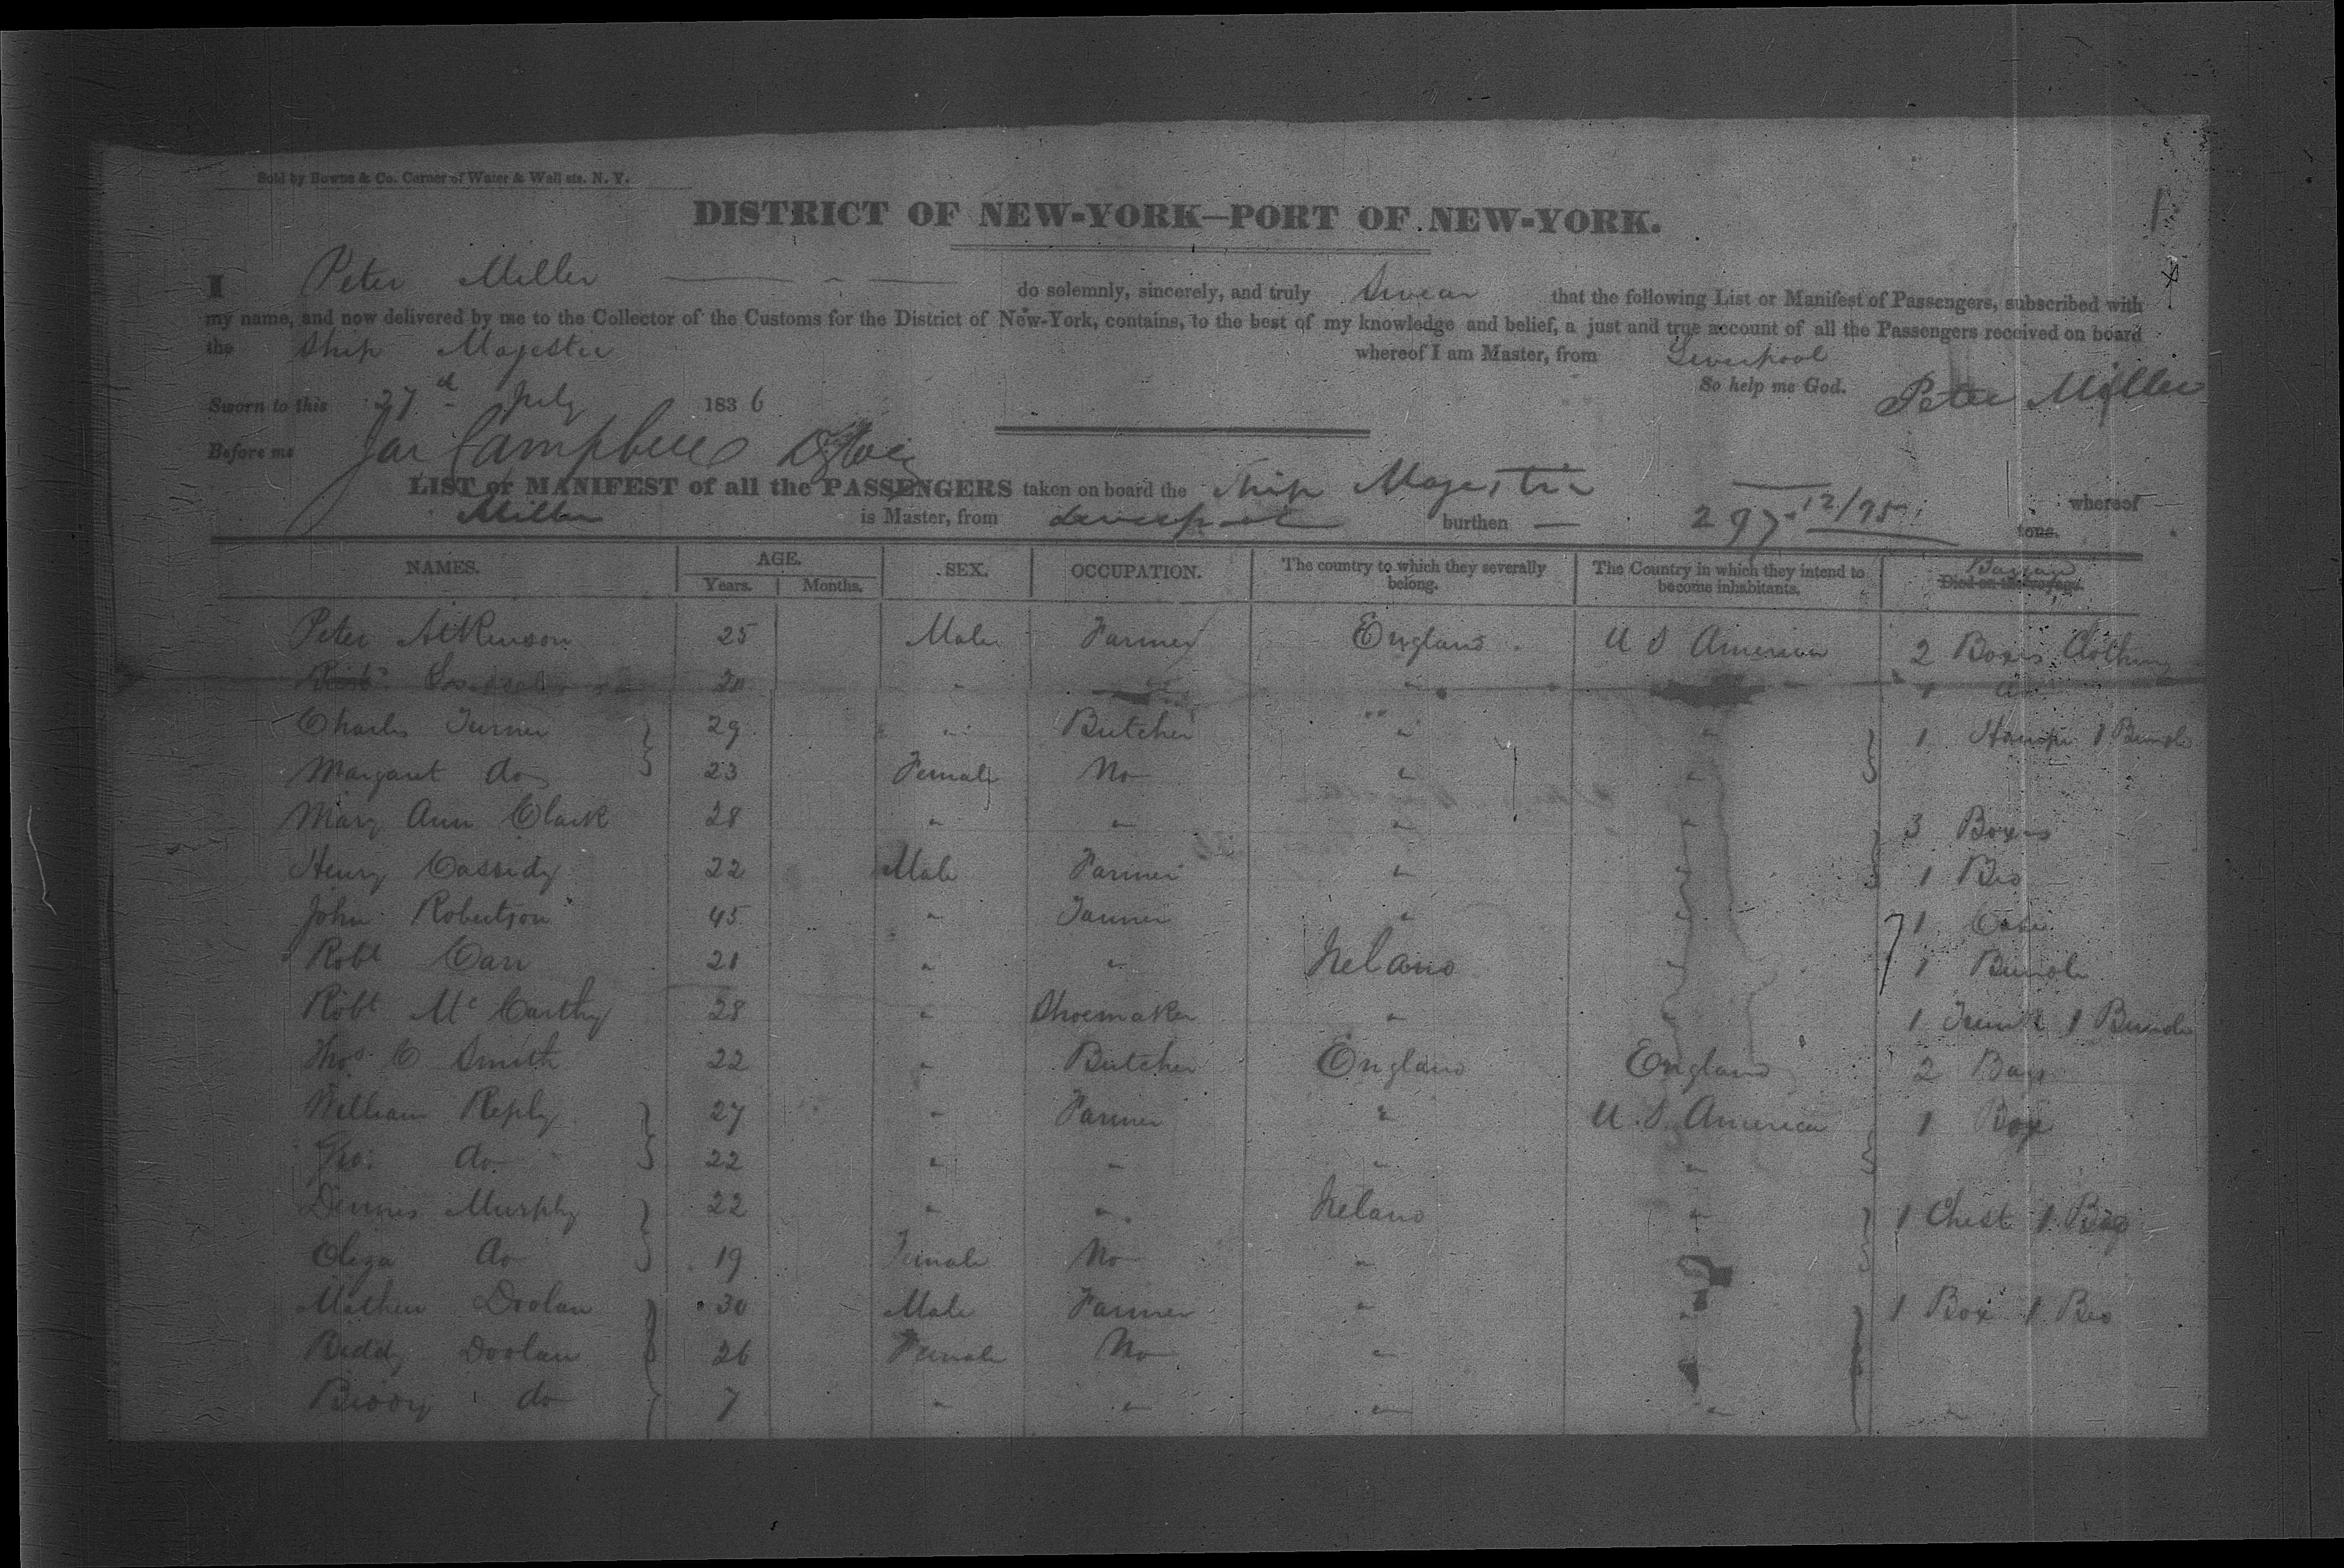 Sold by Bowne & Co. Corner of Water & Wall sts. N. Y.
DISTRICT OF NEW-YORK—PORT OF NEW-YORK.
1
I Peter Miller do solemnly, sincerely, and truly Swear that the following List or Manifest of Passengers, subscribed with
my name, and now delivered by me to the Collector of the Customs for the District of New-York, contains, to the best of my knowledge and belief, a just and true account of all the Passengers received on board
the Ship Majestic whereof I am Master, from Liverpool
So help me God. Peter Miller
Sworn to this 27d July 1836
Before me Jas Campbell
LIST or MANIFEST of all the PASSENGERS taken on board the Ship Majestic whereof
Miller is Master, from Liverpool burthen 297 12/95 tons.
NAMES. AGE. Years. Months. SEX. OCCUPATION. The country to which they severally belong. The Country in which they intend to become inhabitants. Died on the voyage.
Peter Atkinson 25 Male Farmer England U S America 2 Boxes Clothing
Robt 20 " " " 1
Charles Turner 29 " Butcher " " 1 1 Bundle
Margaret do 23 Female No " "
Mary Ann Clark 28 " " " " 3 Boxes
Henry Cassidy 22 Male Farmer " " 1 Box
John Robertson 45 " " " 1
Robt Carr 21 " " Ireland " 1 Bundle
Robt McCarthy 28 " Shoemaker " " 1 Trunk 1 Bundle
Thos C Smith 22 " Butcher England England 2 Bags
William Reply 27 " Farmer " U.S. America 1 Box
Thos do 22 " " " "
Dennis Murphy 22 " " Ireland " 1 Chest 1 Bag
Eliza do 19 Female No " "
Mathew Doolan 30 Male Farmer " " 1 Box 1 Bed
Biddy Doolan 26 Female No "
Biddy do 7 " " " " "